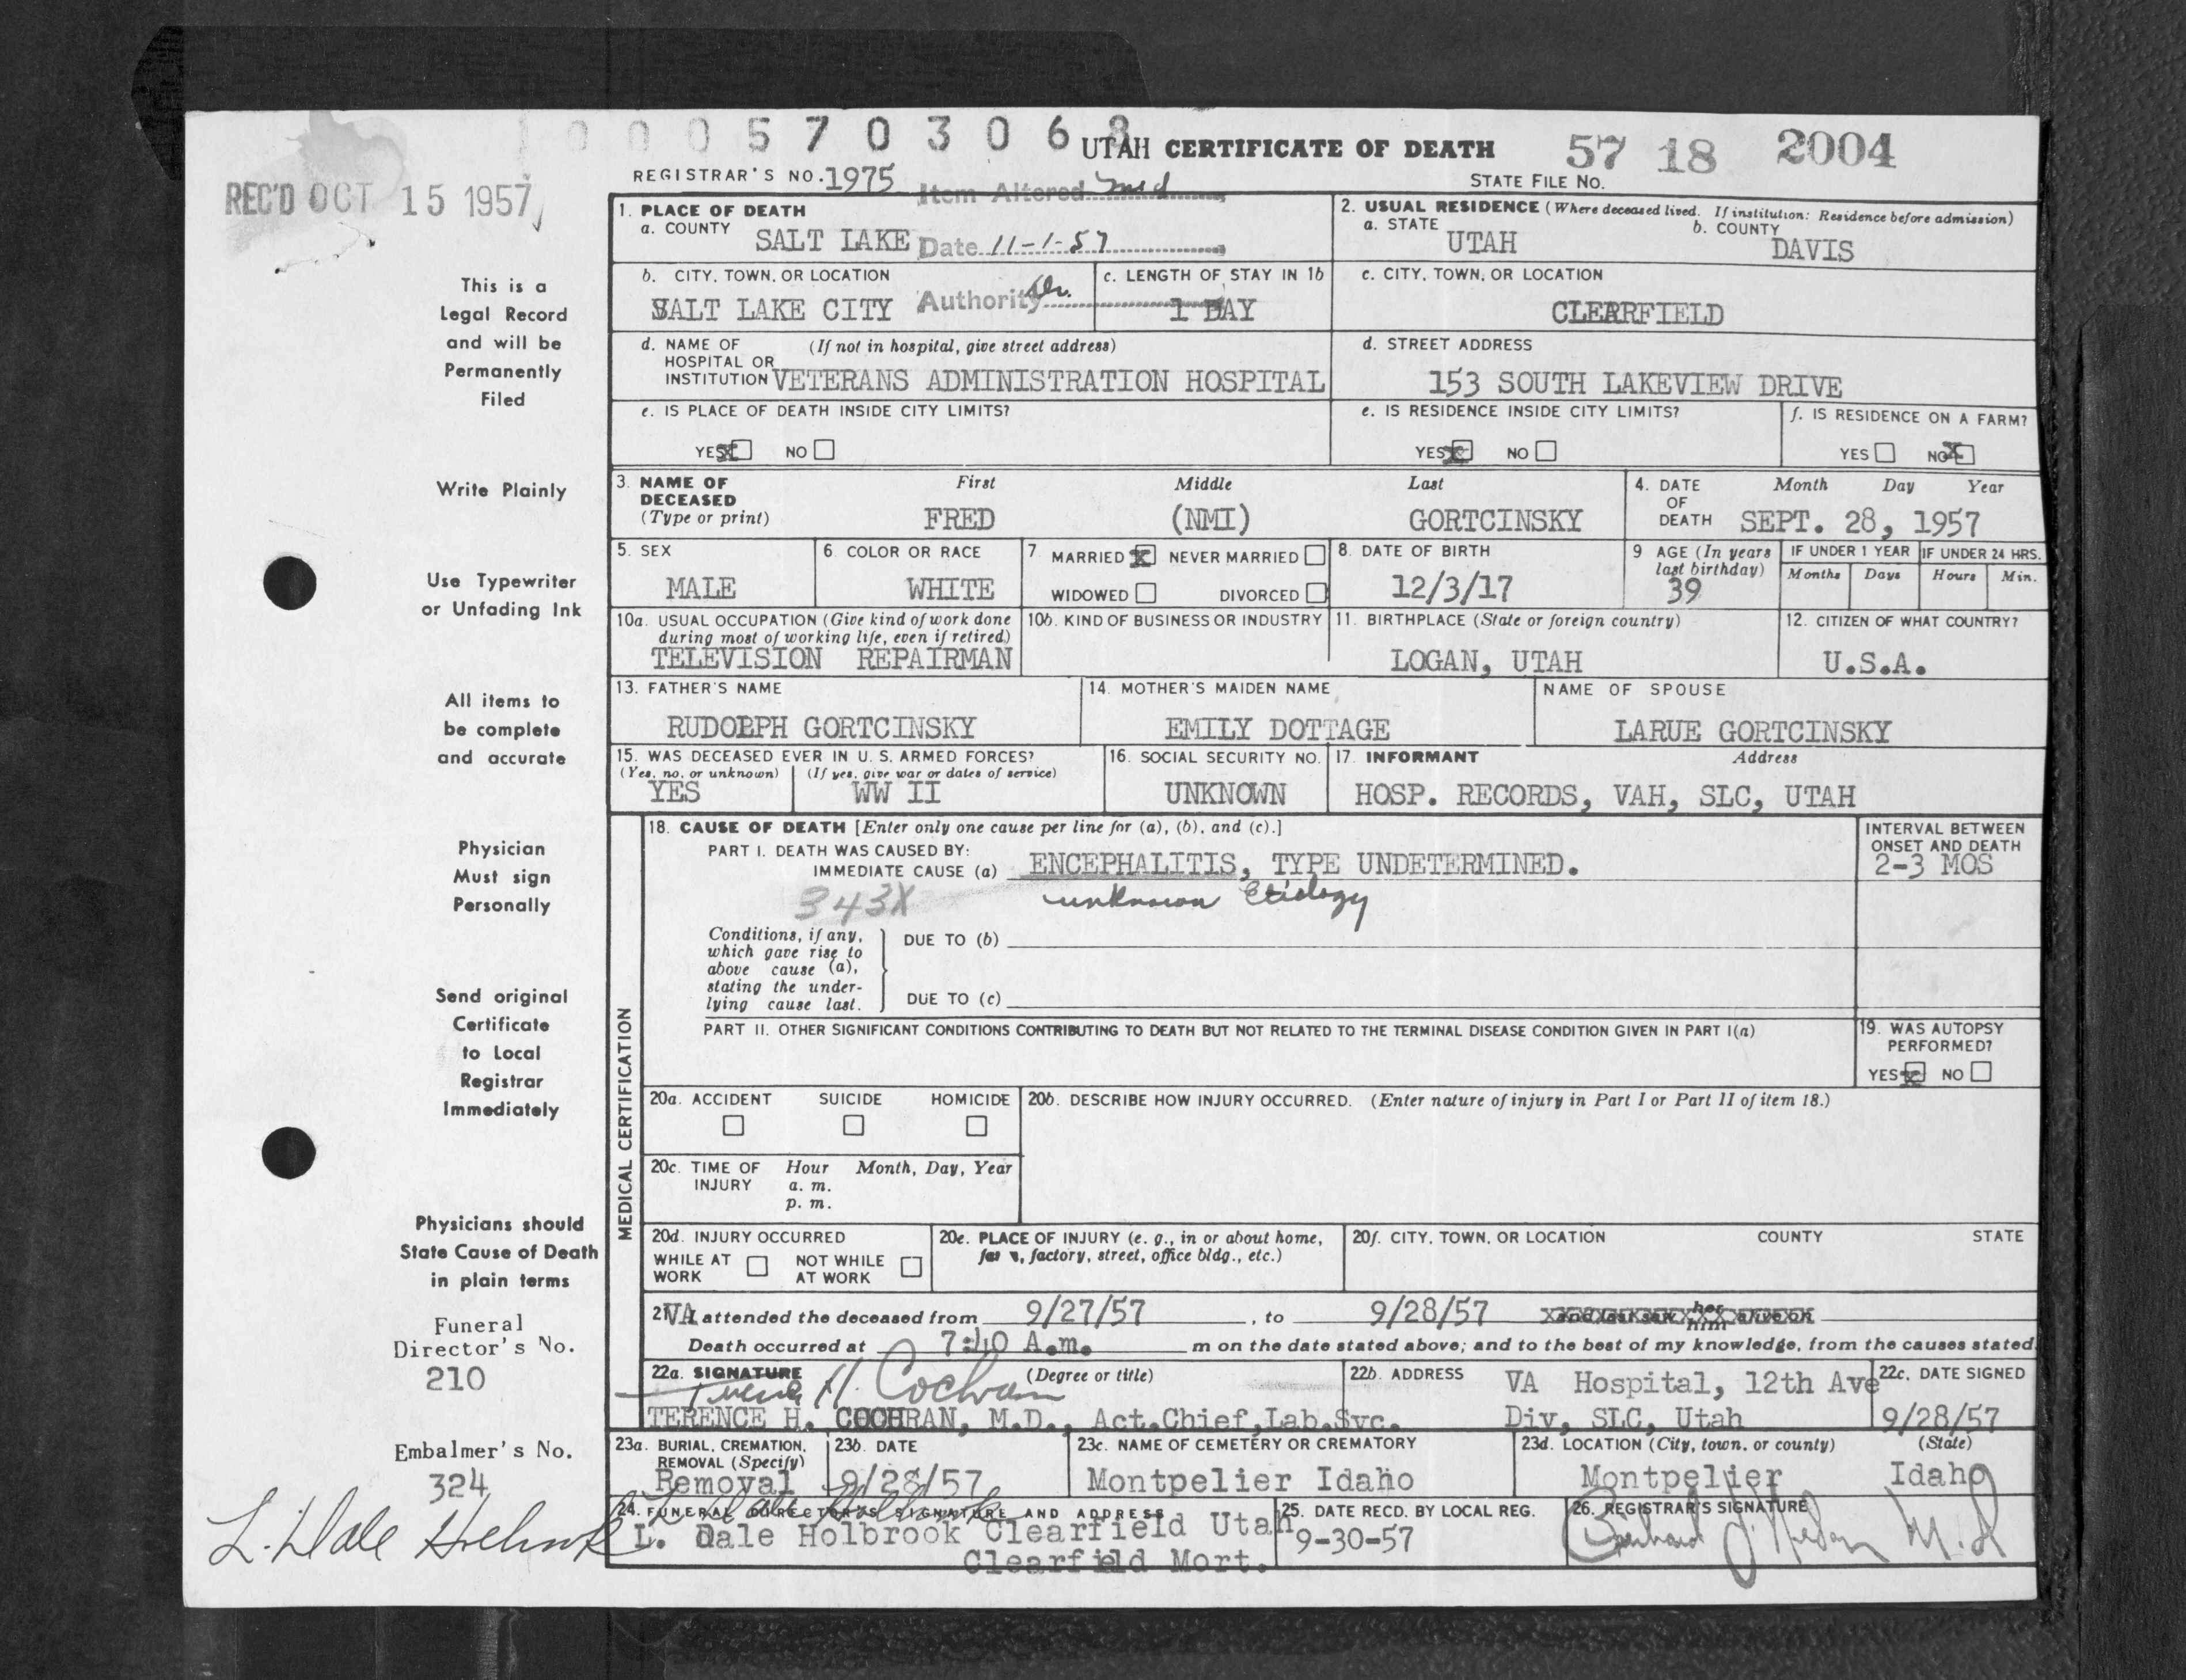 0 0 0 5 7 0 3 0 6 8
UTAH CERTIFICATE OF DEATH
57 18 2004
STATE FILE NO.
REGISTRAR'S NO. 1975
Item Altered med
Date 11-1-57
Authority Dr.
REC'D OCT 15 1957
This is a
Legal Record
and will be
Permanently
Filed
Write Plainly
Use Typewriter
or Unfading Ink
All items to
be complete
and accurate
Physician
Must sign
Personally
Send original
Certificate
to Local
Registrar
Immediately
Physicians should
State Cause of Death
in plain terms
Funeral
Director's No.
210
Embalmer's No.
324
L. Dale Holbrook
1. PLACE OF DEATH
a. COUNTY SALT LAKE
2. USUAL RESIDENCE (Where deceased lived. If institution: Residence before admission)
a. STATE UTAH b. COUNTY DAVIS
b. CITY, TOWN, OR LOCATION SALT LAKE CITY
c. LENGTH OF STAY IN 1b 1 DAY
c. CITY, TOWN, OR LOCATION CLEARFIELD
d. NAME OF HOSPITAL OR INSTITUTION (If not in hospital, give street address) VETERANS ADMINISTRATION HOSPITAL
d. STREET ADDRESS 153 SOUTH LAKEVIEW DRIVE
e. IS PLACE OF DEATH INSIDE CITY LIMITS?
YES X NO
e. IS RESIDENCE INSIDE CITY LIMITS?
YES X NO
f. IS RESIDENCE ON A FARM?
YES NO X
3. NAME OF DECEASED (Type or print)
First Middle Last
FRED (NMI) GORTCINSKY
4. DATE OF DEATH Month Day Year
SEPT. 28, 1957
5. SEX MALE
6. COLOR OR RACE WHITE
7. MARRIED X NEVER MARRIED
WIDOWED DIVORCED
8. DATE OF BIRTH 12/3/17
9 AGE (In years last birthday) 39
IF UNDER 1 YEAR Months Days
IF UNDER 24 HRS. Hours Min.
10a. USUAL OCCUPATION (Give kind of work done during most of working life, even if retired)
TELEVISION REPAIRMAN
10b. KIND OF BUSINESS OR INDUSTRY
11. BIRTHPLACE (State or foreign country)
LOGAN, UTAH
12. CITIZEN OF WHAT COUNTRY?
U.S.A.
13. FATHER'S NAME
RUDOLPH GORTCINSKY
14. MOTHER'S MAIDEN NAME
EMILY DOTTAGE
NAME OF SPOUSE
LARUE GORTCINSKY
15. WAS DECEASED EVER IN U. S. ARMED FORCES?
(Yes, no, or unknown) (If yes, give war or dates of service)
YES WW II
16. SOCIAL SECURITY NO.
UNKNOWN
17. INFORMANT Address
HOSP. RECORDS, VAH, SLC, UTAH
MEDICAL CERTIFICATION
18. CAUSE OF DEATH [Enter only one cause per line for (a), (b), and (c).]
PART I. DEATH WAS CAUSED BY:
IMMEDIATE CAUSE (a) ENCEPHALITIS, TYPE UNDETERMINED.
343X unknown Etiology
INTERVAL BETWEEN ONSET AND DEATH
2-3 MOS
Conditions, if any, which gave rise to above cause (a), stating the underlying cause last.
DUE TO (b)
DUE TO (c)
PART II. OTHER SIGNIFICANT CONDITIONS CONTRIBUTING TO DEATH BUT NOT RELATED TO THE TERMINAL DISEASE CONDITION GIVEN IN PART I(a)
19. WAS AUTOPSY PERFORMED?
YES X NO
20a. ACCIDENT SUICIDE HOMICIDE
20b. DESCRIBE HOW INJURY OCCURRED. (Enter nature of injury in Part I or Part II of item 18.)
20c. TIME OF INJURY Hour Month, Day, Year
a. m.
p. m.
20d. INJURY OCCURRED
WHILE AT WORK NOT WHILE AT WORK
20e. PLACE OF INJURY (e. g., in or about home, farm, factory, street, office bldg., etc.)
20f. CITY, TOWN, OR LOCATION COUNTY STATE
21 VA attended the deceased from 9/27/57, to 9/28/57 and last saw her him alive on
Death occurred at 7:40 A.m. m on the date stated above; and to the best of my knowledge, from the causes stated.
22a. SIGNATURE (Degree or title)
Terence H. Cochran
TERENCE H. COCHRAN, M.D., Act.Chief,Lab.Svc.
22b. ADDRESS VA Hospital, 12th Ave
Div, SLC, Utah
22c. DATE SIGNED
9/28/57
23a. BURIAL, CREMATION, REMOVAL (Specify)
Removal
23b. DATE
9/28/57
23c. NAME OF CEMETERY OR CREMATORY
Montpelier Idaho
23d. LOCATION (City, town, or county) (State)
Montpelier Idaho
24. FUNERAL DIRECTOR'S SIGNATURE AND ADDRESS
L Dale Holbrook
L. Dale Holbrook Clearfield Utah
Clearfield Mort.
25. DATE RECD. BY LOCAL REG.
9-30-57
26. REGISTRAR'S SIGNATURE
M.D